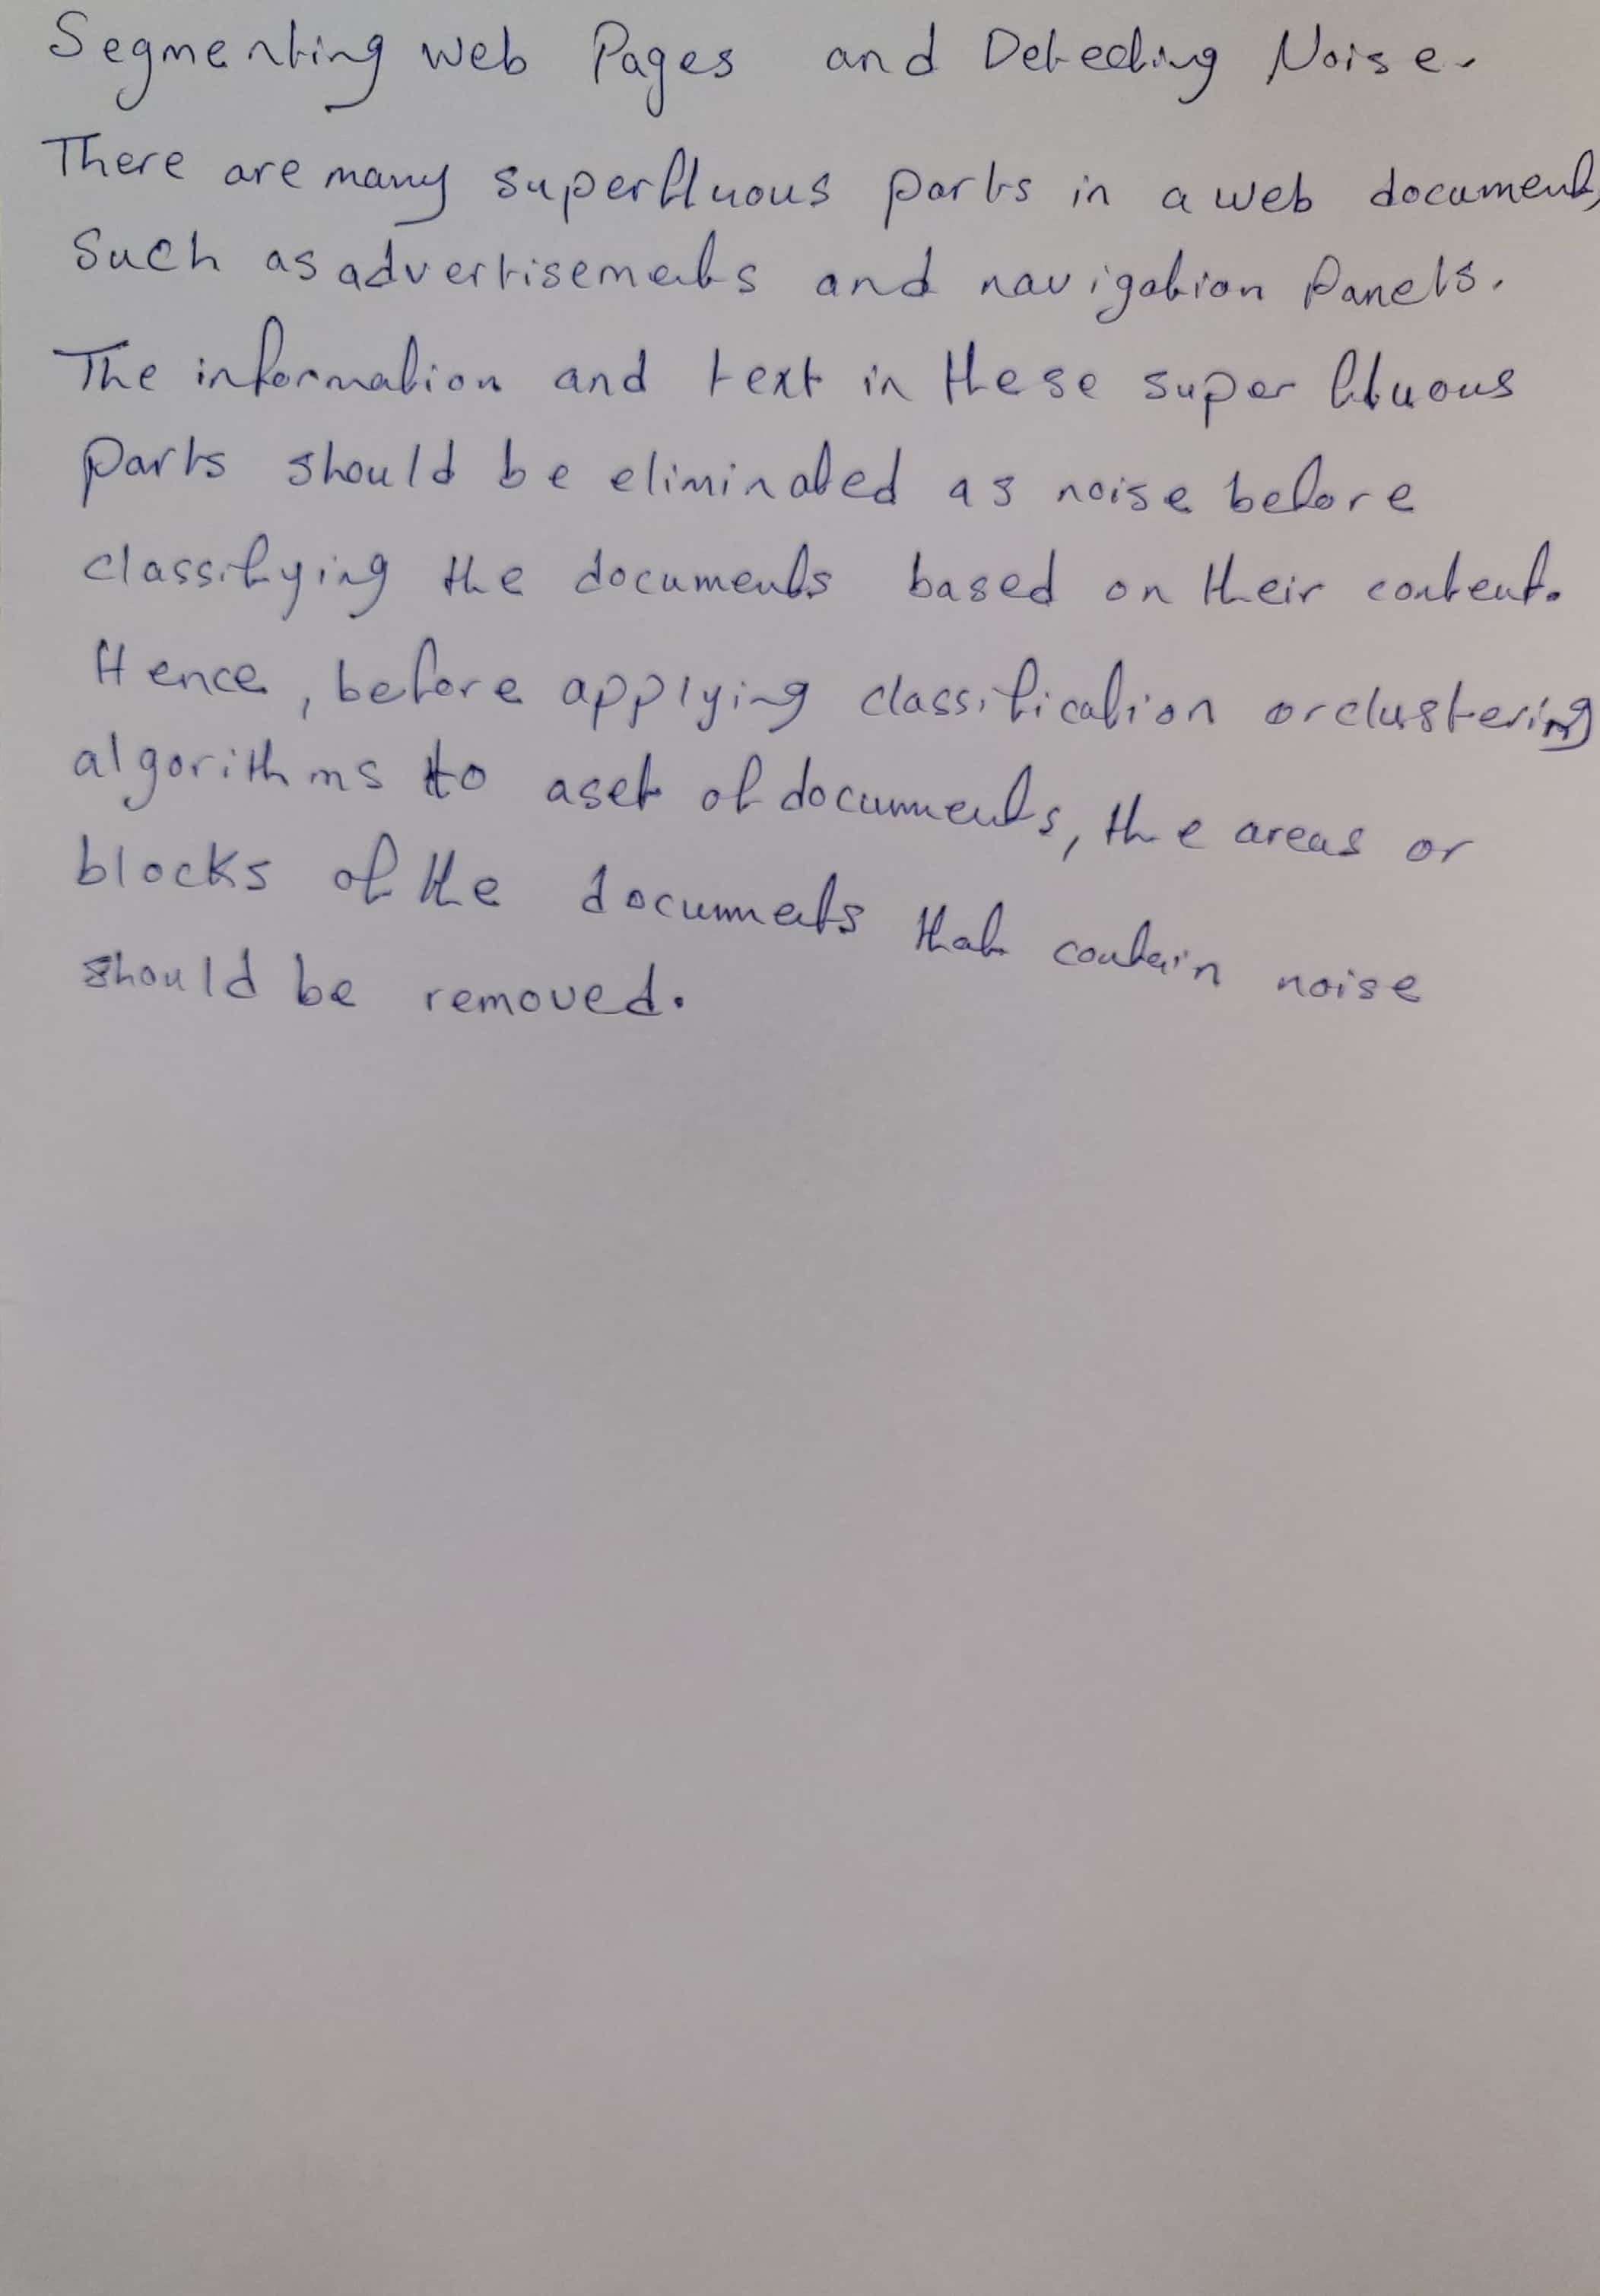 Segmenting Web Pages and Detecting Noise.
There are many superfluous parts in a web document,
Such as advertisements and navigation Panels.
The information and text in these super fluous
Parts should be eliminated as noise before
classifying the documents based on their content.
Hence, before applying classification or clustering
algorithms to a set of documents, the areas or
blocks of the documents that contain noise
should be removed.